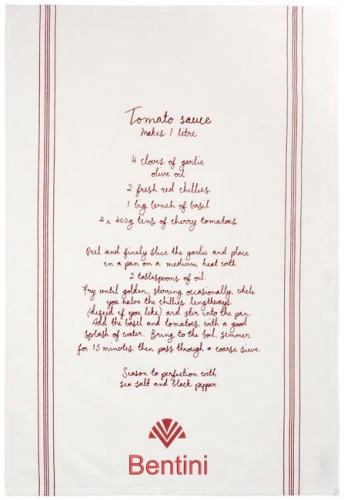 Tomato sauce
Makes 1 litre
4 cloves of garlic
olive oil
2 fresh red chillies
1 big bunch of basil
4 x 400g tins of cherry tomatoes
Peel and finely slice the garlic and place
in a pan on a medium heat with
2 tablespoons of oil.
Fry until golden, stirring occasionally, while
you halve the chillies lengthways
(deseed if you like) and stir into the pan.
Add the basil and tomatoes, with a good
splash of water. Bring to the boil, simmer
for 15 minutes, then pass through a coarse sieve.
Season to perfection with
sea salt and black pepper.
Bentini